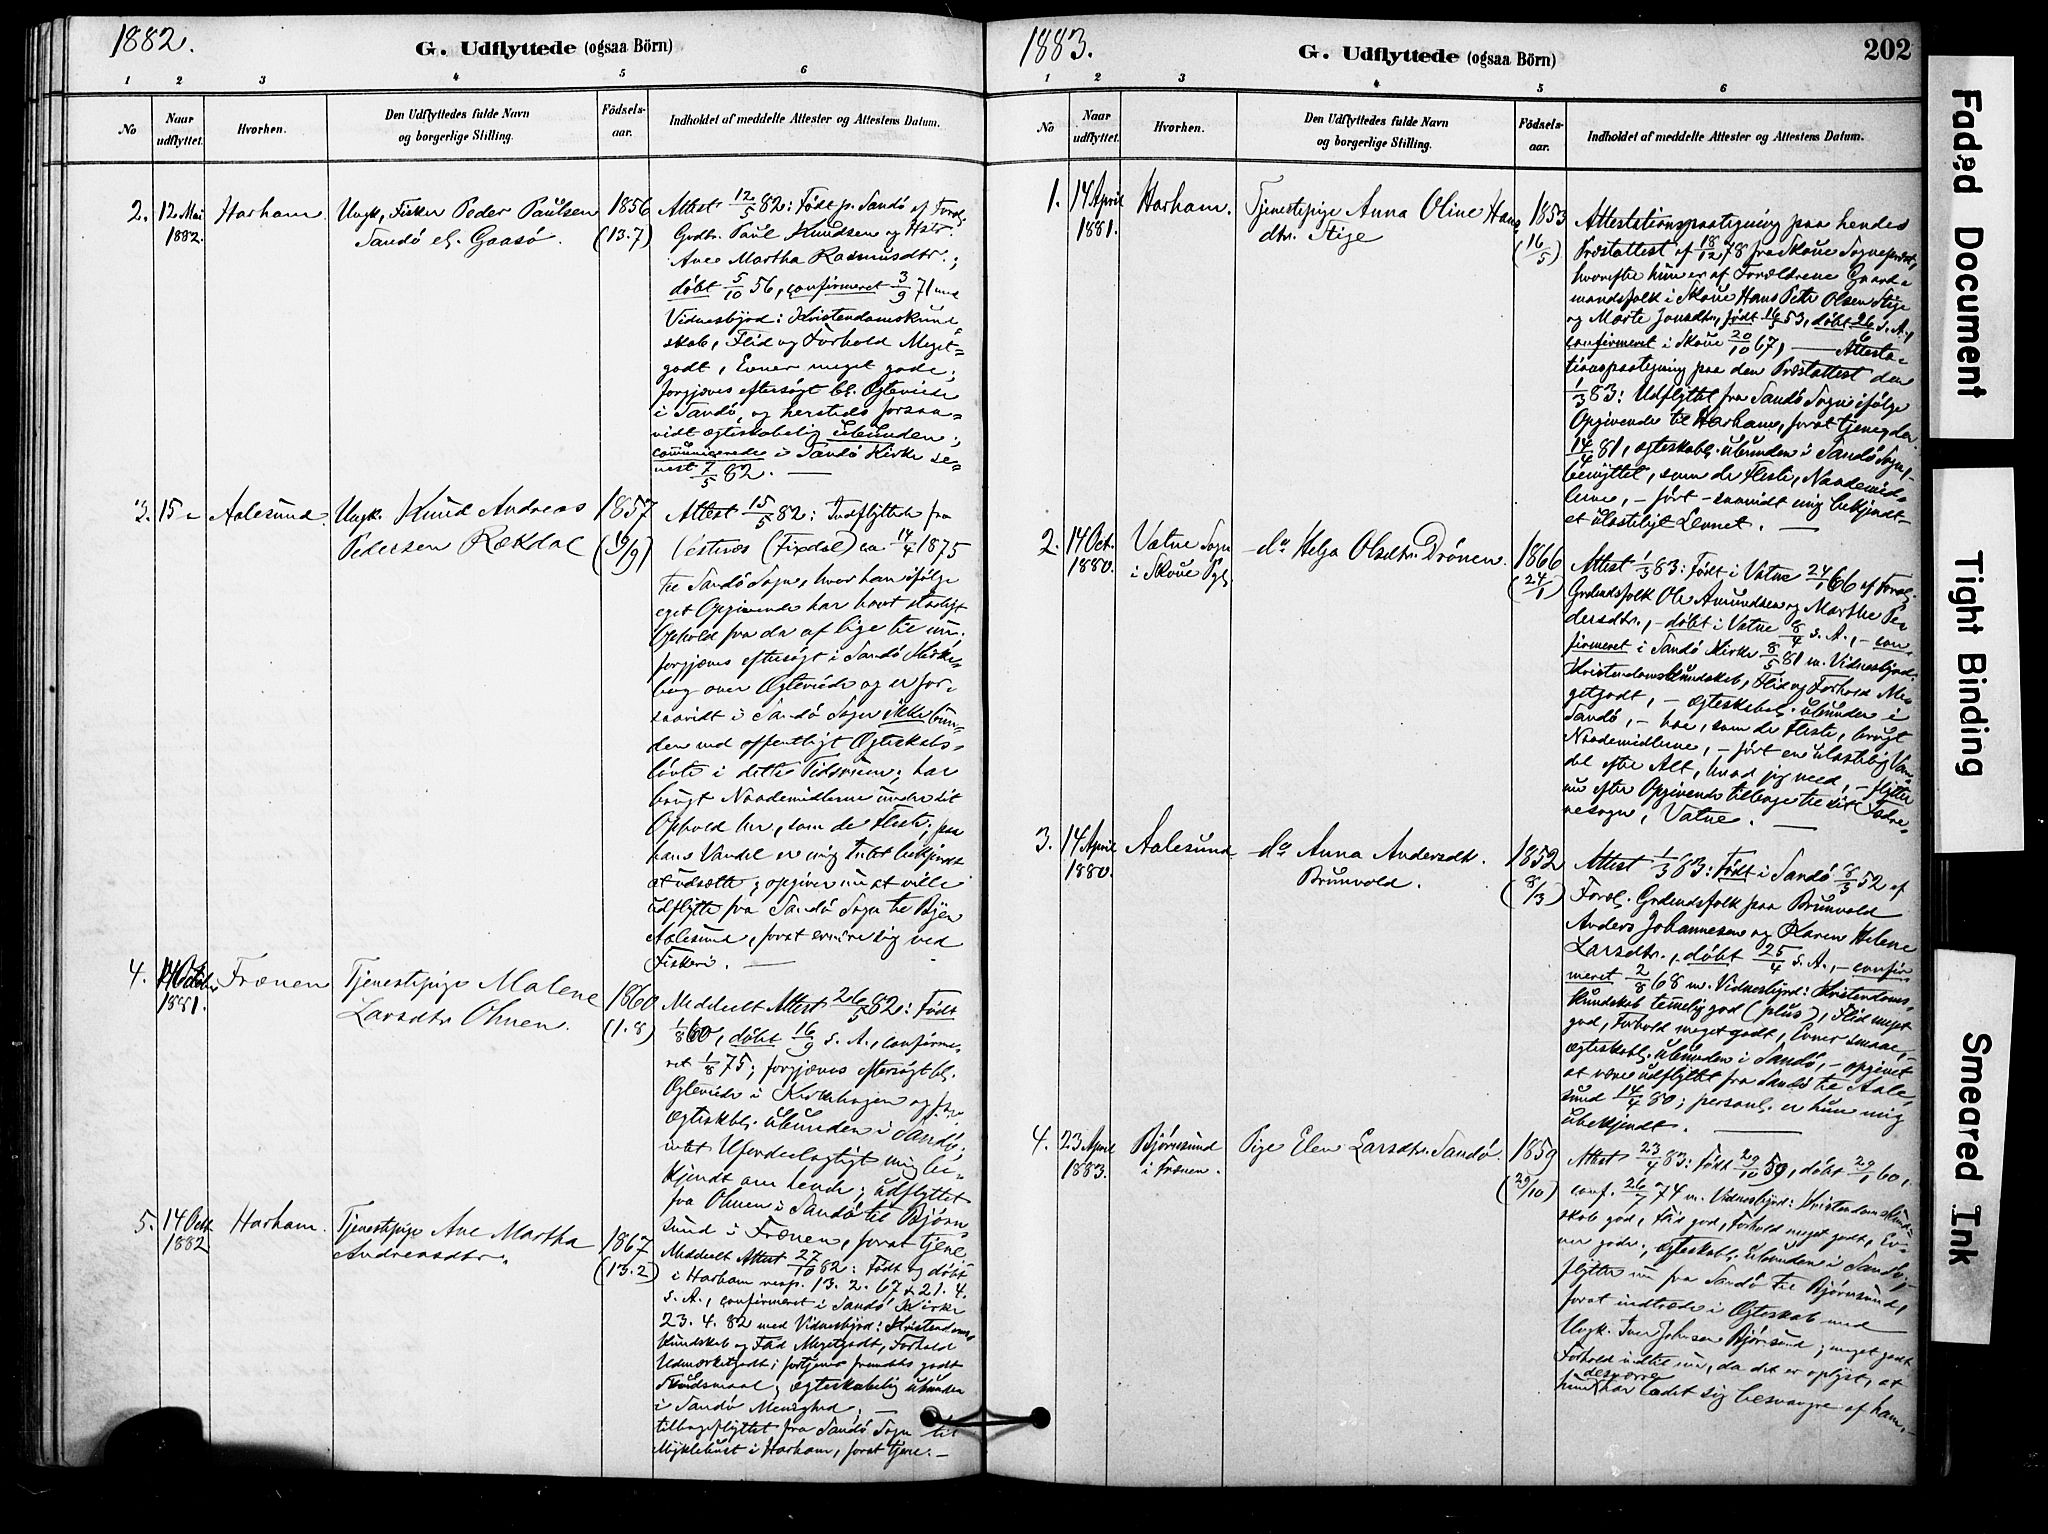 1882.
G. Udflyttede (ogsaa Börn)
1 2 3 4 5 6
No
Naar udflyttet.
Hvorhen.
Den Udflyttedes fulde Navn
og borgerlige Stilling.
Födsels-aar.
Indholdet af meddelte Attester og Attestens Datum.
2. 12 Mai 1882.
Harham
Ungk. Fisker Peder Paulsen
Sandö el. Gaasö.
1856
(13.7)
Attest 12/5 82: Født p. Sandö af Foræl.
Grdbr. Paul Knudsen og Hstr.
Ane Martha Rasmusdtr.;
døbt 5/10 56, confirmeret 3/9 71 med
Vidnesbyrd i Kristendomskund-
skab, Flid og Forhold Meget-
godt, Evner meget gode;
forgjæves eftersøgt bl. Ægteviede
i Sandö, og hersteds forsaa-
vidt ægteskabelig ubunden;
communicerede i Sandö Kirke se-
nest 7/5 82. —
3. 15 "
Aalesund
Ungk. Knud Andreas
Pedersen Rekdal
1857
(19/9)
Attest 15/5 82: Indflyttede fra
Vestnæs (Fixdal) ca 14/4 1875
til Sandö Sogn, hvor han ifølge
eget Opgivende har havt stadigt
Ophold fra da af lige til nu.
forgjæves eftersøgt i Sandö Kirke-
bog over Ægteviede og er for-
saavidt i Sandö Sogn ikke bun-
den ved offentligt Ægteskabs-
löfte i dette Tidsrum; har
brugt Naademidlerne under sit
Ophold her, som de Fleste; paa
hans Vandel er mig Intet bekjendt
at udsætte; opgiver nu at ville
udflytte fra Sandö Sogn til Byen
Aalesund, forat ernære sig ved
Fiskeri. —
4. 14 October 1881.
Frænen
Tjenestepige Malene
Larsdtr. Ohnen.
1860
(1.8)
Meddeelt Attest 26/5 82: Født
1/8 60, døbt 16/9 s. A., confirme-
ret 1/8 75; forgjæves eftersøgt bl.
Ægteviede i Kirkebogen og
ægteskbl. ubunden i Sandö;
intet Ufordelagtigt mig be-
kjendt om hende; udflyttet
fra Ohnen i Sandö til Björn-
sund i Frænen, forat tjene.
5. 14 Octb. 1882
Harham.
Tjenestepige Ane Martha
Andreasdtr.
1867
(13.2)
Meddeelt Attest 27/10 82: Født og døbt
i Harham resp. 13. 2. 67 & 21. 4.
s. A., confirmeret i Sandö Kirke
23. 4. 82 med Vidnesbyrd: Kristendoms-
kundskab og Flid Megetgodt, Forhold
Udmærketgodt; fortjener fremdeles godt
Skudsmaal; ægteskabelig ubunden
i Sandö Menighed; —
tilbageflyttet fra Sandö Sogn til
Myklebust i Harham, forat tjene. —
1883.
G. Udflyttede (ogsaa Börn)
202
1 2 3 4 5 6
No
Naar udflyttet.
Hvorhen.
Den Udflyttedes fulde Navn
og borgerlige Stilling.
Födsels-aar.
Indholdet af meddelte Attester og Attestens Datum.
1. 14 April 1881.
Harham.
Tjenestepige Anna Oline Hans
dtr. Stige
1853
(16/5)
Attestationspaategning paa hendes
Præstattest af 18/12 78 fra Skoue Sognepræst,
hvorefter hun er af Forældrene Gaard-
mandsfolk i Skoue Hans Petr Olsen Stige
og Marte Jonsdtr., født 16/5 53, døbt 26/6 s. A.,
confirmeret i Skoue 20/10 67, — Attesta-
tionspaategning paa den Præstattest den
1/3 83: Udflyttet fra Sandö Sogn ifølge
Opgivende til Harham, forat tjene, der
14/4 81, ægteskabl. ubunden i Sandö Sogn, —
benyttet, som de Fleste, Naademid-
lerne, — ført — saavidt mig bekjendt —
et ulasteligt Levnet. —
2. 14 Oct. 1880.
Vatne Sogn
i Skoue Pgl.
do Helga Olsdtr. Drönen.
1866
(24/1)
Attest 1/3 83: Født i Vatne 24/1 66 af Foræl.
Grdmdsfolk Ole Amundsen og Marthe Pe-
dersdtr., — døbt i Vatne 8/4 s. A., — con-
firmeret i Sandö Kirke 8/5 81 m. Vidnesbyrd:
Kristendomskundskab, Flid og Forhold Me-
getgodt, — ægteskabl. ubunden i
Sandö, — har, som de Fleste, brugt
Naademidlerne, — ført en ulastelig Van-
del efter Alt, hvad jeg veed, — flytter
nu efter Opgivende tilbage til sit Fødre-
nesogn, Vatne. —
3. 14 April 1880.
Aalesund
do Anna Andersdtr.
Brunvold.
1852
(8/3)
Attest 1/3 83: Født i Sandö 8/3 52 af
Foræl. Grdmdsfolk paa Brunvold
Anders Johannesen og Karen Helene
Larsdtr., døbt 25/4 s. A., — confir-
meret 2/8 68 m. Vidnesbyrd: Kristendoms-
kundskab temelig god (plus), Flid meget
god, Forhold meget godt, Evner smaae, —
ægteskabl. ubunden i Sandö, — opgivet
at være udflyttet fra Sandö til Aale-
sund 14/4 80; personl. er hun mig
ubekjendt. —
4. 23 April 1883.
Björnsund
i Frænen.
Pige Elen Larsdtr. Sandö.
1859
(29/10)
Attest 23/4 83: Født 29/10 59, døbt 29/1 60,
conf. 26/7 74 m. Vidnesbyrd: Kristendomskund-
skab god, Flid god, Forhold meget godt, Ev-
ner gode; ægteskabl. ubunden i Sandö, —
flytter nu fra Sandö til Björnsund,
forat indtræde i Ægteskab med
Ungk. Iver Johnsen Björnsund; meget godt
Forhold indtil nu, da det er oplyst, at
hun desværre har ladet sig besvangre af ham. —
Faded Document
Tight Binding
Smeared Ink